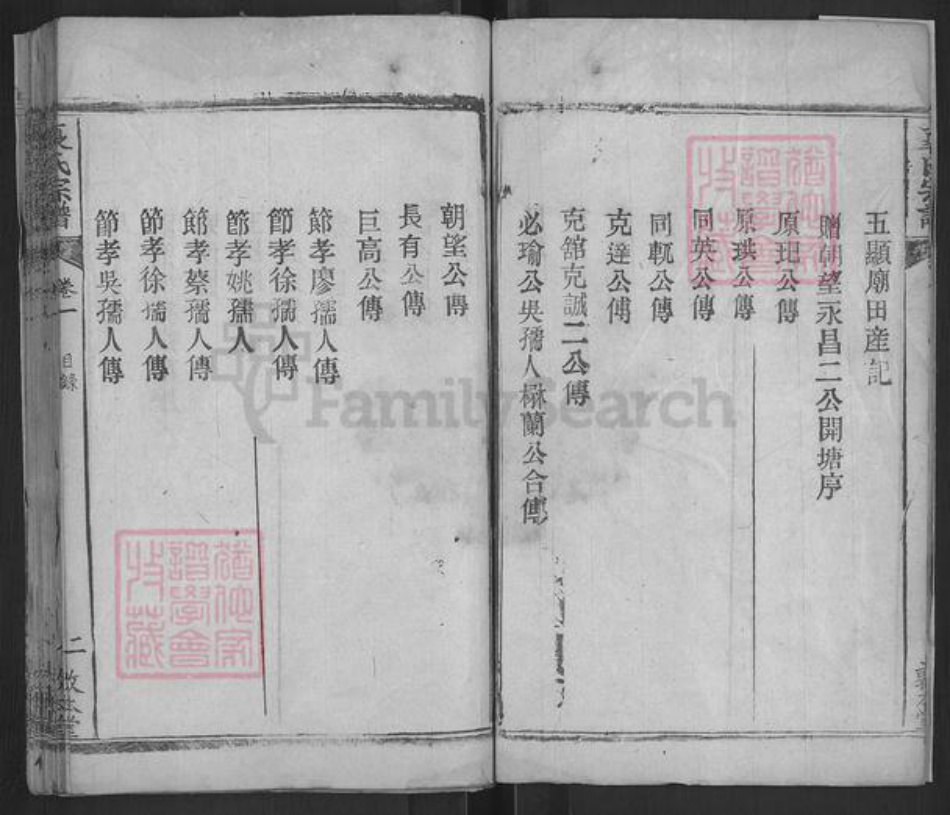 五顯廟田產記
贈朝望永昌二公開塘序
原玘公傳
原珙公傳
同英公傳
同輒公傳
克達公傳
克舘克誠二公傳
必瑜公吳孺人楙蘭公合傳
朝望公傳
長有公傳
巨高公傳
節孝廖孺人傳
節孝徐孺人傳
節孝姚孺人
節孝蔡孺人傳
節孝徐孺人傳
節孝吳孺人傳
氏宗譜
卷一
目錄
二
FamilySearch
譜學會
收藏
譜學會
收藏